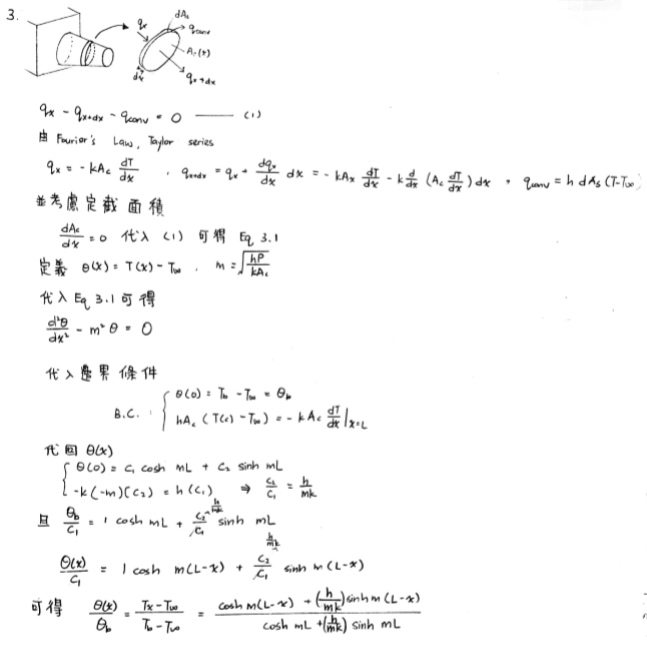 3.
dAs
qx
qconv
Ac(x)
dx
qx+dx
qx - qx+dx - qconv = 0 —— (1)
由 Fourier's Law, Taylor series
qx = -kAc dT/dx , qx+dx = qx + dqx/dx dx = -kAx dT/dx - k d/dx (Ac dT/dx) dx , qconv = h dAs (T-T∞)
並考慮定截面積
dAc/dx = 0 代入 (1) 可得 Eq 3.1
定義 θ(x) = T(x) - T∞ , m = √(hP/kAc)
代入 Eq 3.1 可得
d²θ/dx² - m²θ = 0
代入邊界條件
B.C. : { θ(0) = Tb - T∞ = θb
hAc (T(L) - T∞) = -kAc dT/dx |x=L
代回 θ(x)
{ θ(0) = c1 cosh mL + c2 sinh mL
-k(-m)(c2) = h(c1) ⇒ c2/c1 = h/mk
且 θb/c1 = 1 cosh mL + c2/c1 h/mk sinh mL
θ(x)/c1 = 1 cosh m(L-x) + c2/c1 h/mk sinh m(L-x)
可得 θ(x)/θb = Tx-T∞/Tb-T∞ = cosh m(L-x) + (h/mk) sinh m(L-x) / cosh mL + (h/mk) sinh mL